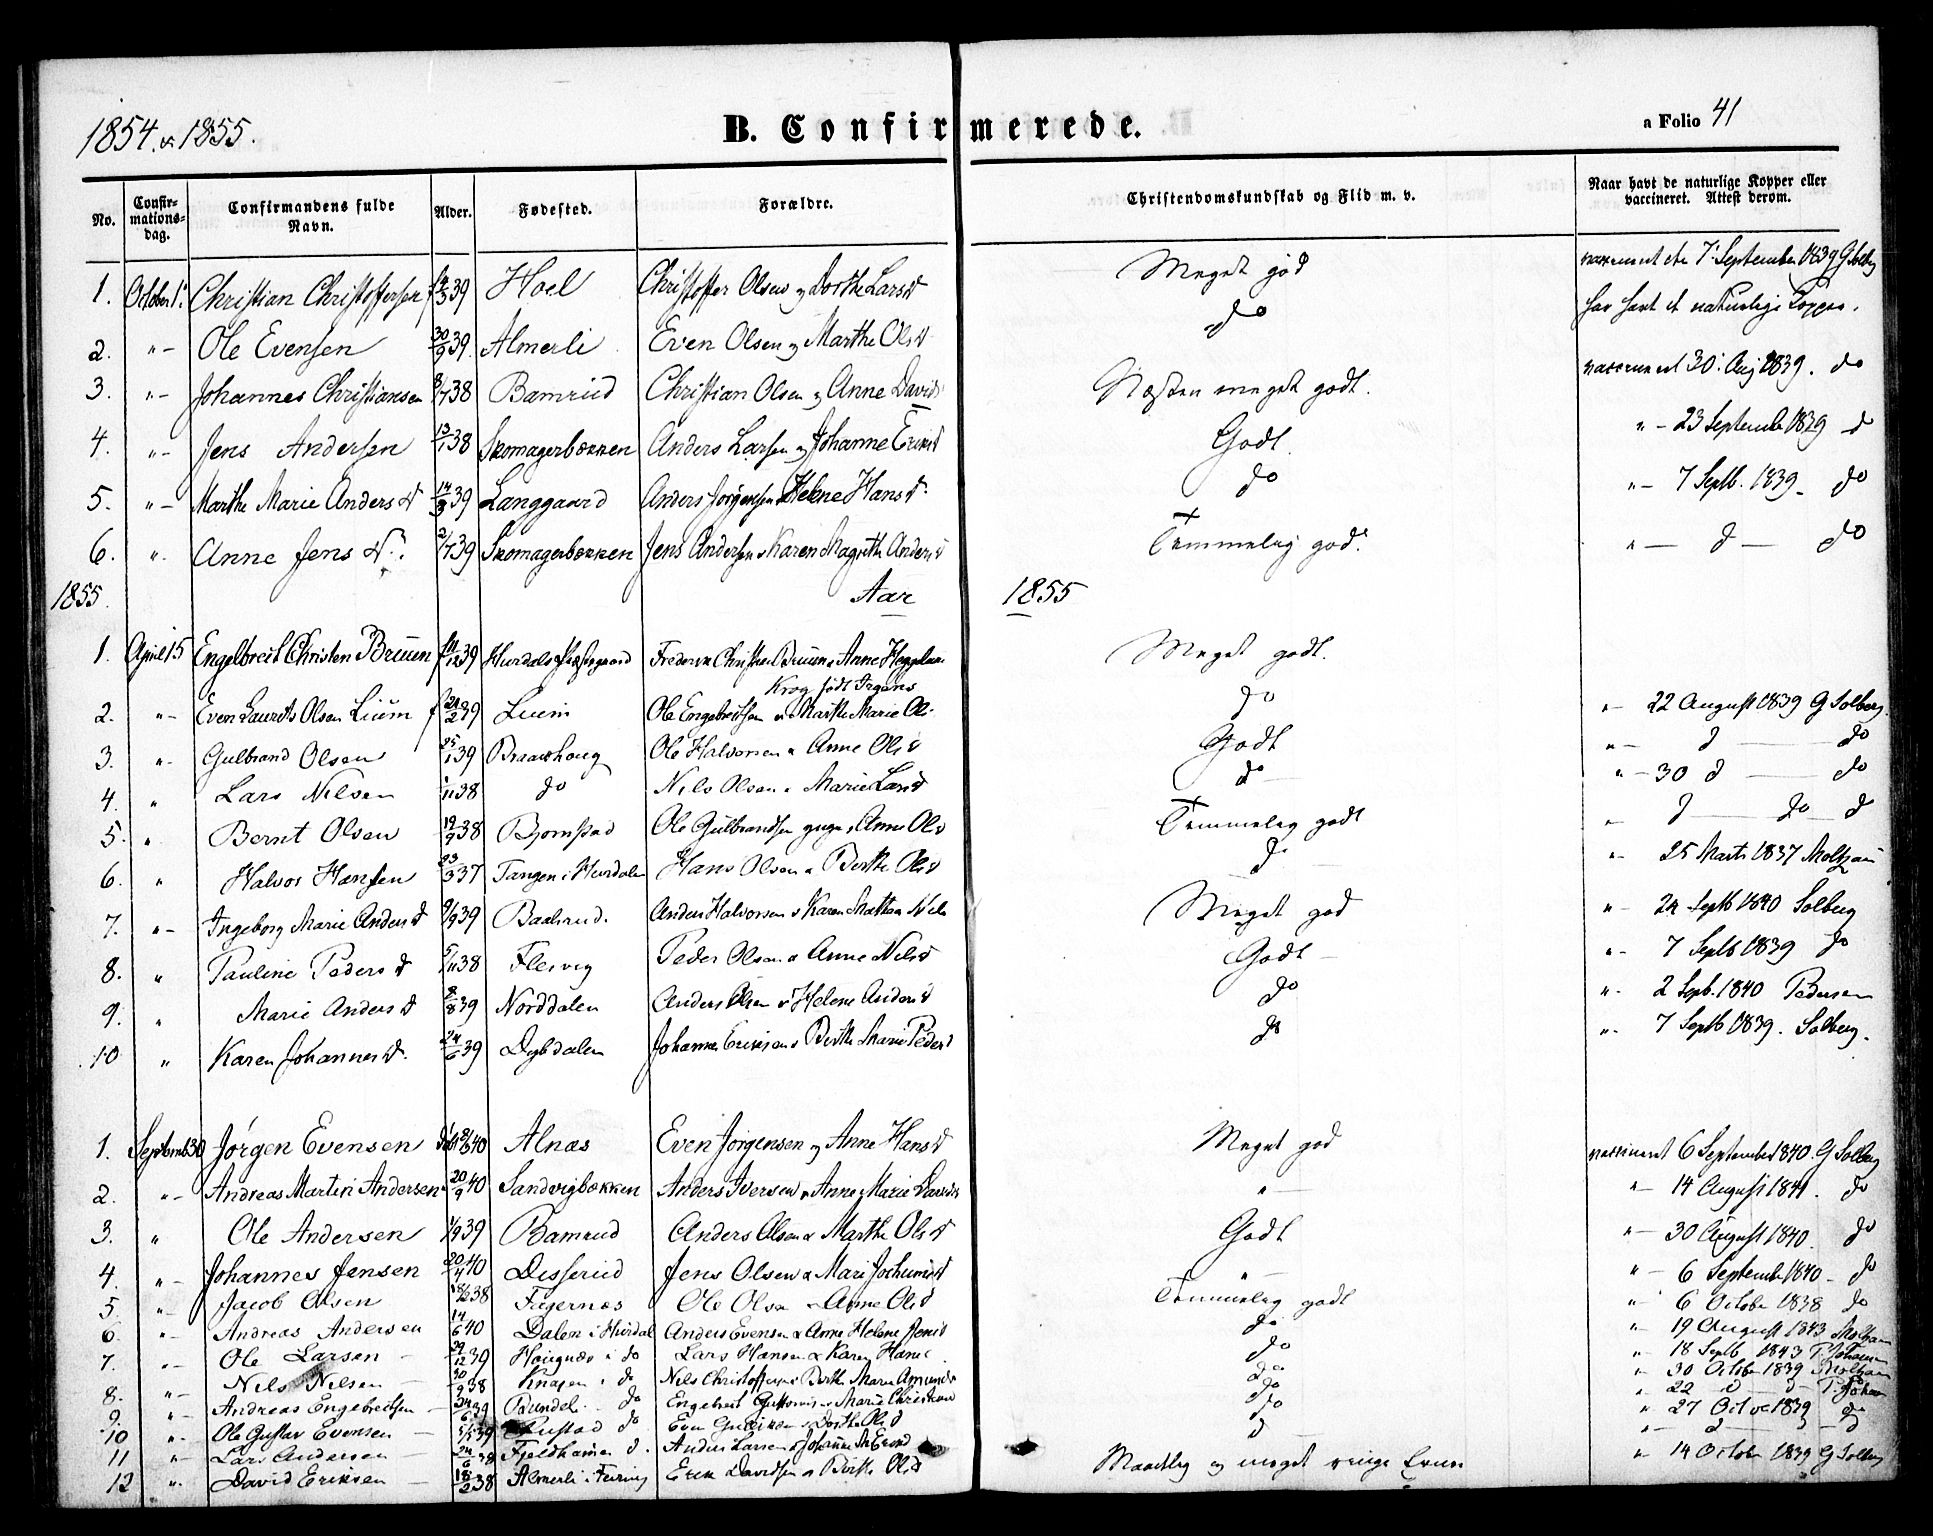 1854 & 1855.
B. Confirmerede.
a Folio 41
No.
Confir-
mations-
dag.
Confirmandens fulde
Navn.
Alder.
Fødested.
Forældre.
Christendomskundskab og Flid m. v.
Naar havt de naturlige Kopper eller
vaccineret. Attest derom.
1. October 1. Christian Christoffersen 39 Hoel Christoffer Olsen og Dorthe Larsd Meget god 7 September 1839 G Solberg
2. "- Ole Evensen 30/9 39. Almerli Even Olsen og Marthe Olsd do har havt d naturlige Kopper.
3. "- Johannes Christiansen 38 Bamrud Christian Olsen og Anne Davids Næsten meget godt. 30 Aug 1839. do
4. "- Jens Andersen 13/1 38 Skomagerbækken Anders Larsen og Johanne Eriksd Godt. "- 23 September 1839 d
5. "- Marthe Marie Andersd 39 Langgaard Anders Jørgensen Helene Hansd. do "- 7 Septb. 1839 - do
6. ". Anne Jensd. 2/7 39 Skomagerbækken Jens Andersen & Karen Magrethe Andersd Temmelig god. "- d - do
1855. Aar 1855
1. April 15 Engelbret Christen Bruun 39 Hurdals Præstegaard Frederik Christian Bruun & Anne Meget godt.
Krog født Irgens
2. "- Even Laurits Olsen Lium 39 Lium Ole Engebretsen & Marthe Marie Ols. do "- 22 August 1839 G Solberg.
3. "- Gulbrand Olsen 25/1 39 Braashoug Ole Halvorsen & Anne Olsd Godt "- d - do
4. " Lars Nilsen 38 do Nils Olsen & Marie Larsd do "- 30 d - do
5. " Bernt Olsen 19/9 38 Bjornstad Ole Gulbrandsen & Anne Olsd Temmelig godt " d - do - d
6. " Halvor Hansen 23/3 37 Tangen i Hurdalen Hans Olsen & Berthe Olsd do "- 25 Marts 1837 Moltzau
7. "- Ingeborg Marie Andersd 39 Baalsrud. Anders Halvorsen & Karen Nils Meget god "- 24 Septb 1840 Solberg
8. " Pauline Pedersd 5/11 38 Flesvig Peder Olsen & Anne Nilsd Godt - "- 7 Septb 1839 do
9. " Marie Andersd 8/8 39 Norddalen Anders Olsen & Helene Andersd do "- 2 Sepb. 1840 Pedersen
10 " Karen Johannesd. 24/6 39 Dybdalen Johannes Eriksen & Berthe Marie Pedersd do "- 7 Septb 1839. Solberg.
1. Septembr 30 Jørgen Evensen 40 Alnæs Even Jørgensen og Anne Hansd Meget god vaccineret 6 September 1840. G Solberg
2. "- Andreas Martin Andersen 20/9 40 Sandvigbækken Anders Iversen & Anne Marie Davids "- "- 14 August 1841. do
3. " Ole Andersen 1/9 39 Bamrud Anders Olsen & Marthe Olsd Godt "- 30 August 1840. do
4. "- Johannes Jensen 20/4 40 Disserud Jens Olsen & Mari Jochumsd "- "- 6 September 1840 - do
5. "- Jacob Olsen 38 Fugernæs Ole Olsen & Anne Olsd Temmelig godt "- 6 October 1838 do
6. "- Andreas Andersen 14/6 40 Dalen i Hurdal Anders Evensen & Anne Helene Jensd do "- 19 August 1843 Moltzau
7. "- Ole Larsen 29/12 39 i do Lars Hansen & Karen Hansd do "- 18 Septb 1843 P. Johansen
8. "- Nils Nilsen 38 Knajen i do Nils Christoffersen & Berthe Marie Amunds do "- 30 October 1839 Moltzau
9. "- Andreas Engebretsen 39 Rundel do Engebret & Marie do " 22 d - d P. Johan
10 "- Ole Gustav Evensen 39 Rustad do Even & Dorthe Olsd do " 27 Octobr 1839 do
11 "- Lars Andersen 38 Fjeldhamar d. Anders Larsen & Johanne Eriksd d "- d - d
12 ". David Eriksen 18/2 38 Almerli i Feiring Erik Davidsen & Berthe Olsd Maadelig og meget ringe "- 14 October 1839 G Solberg